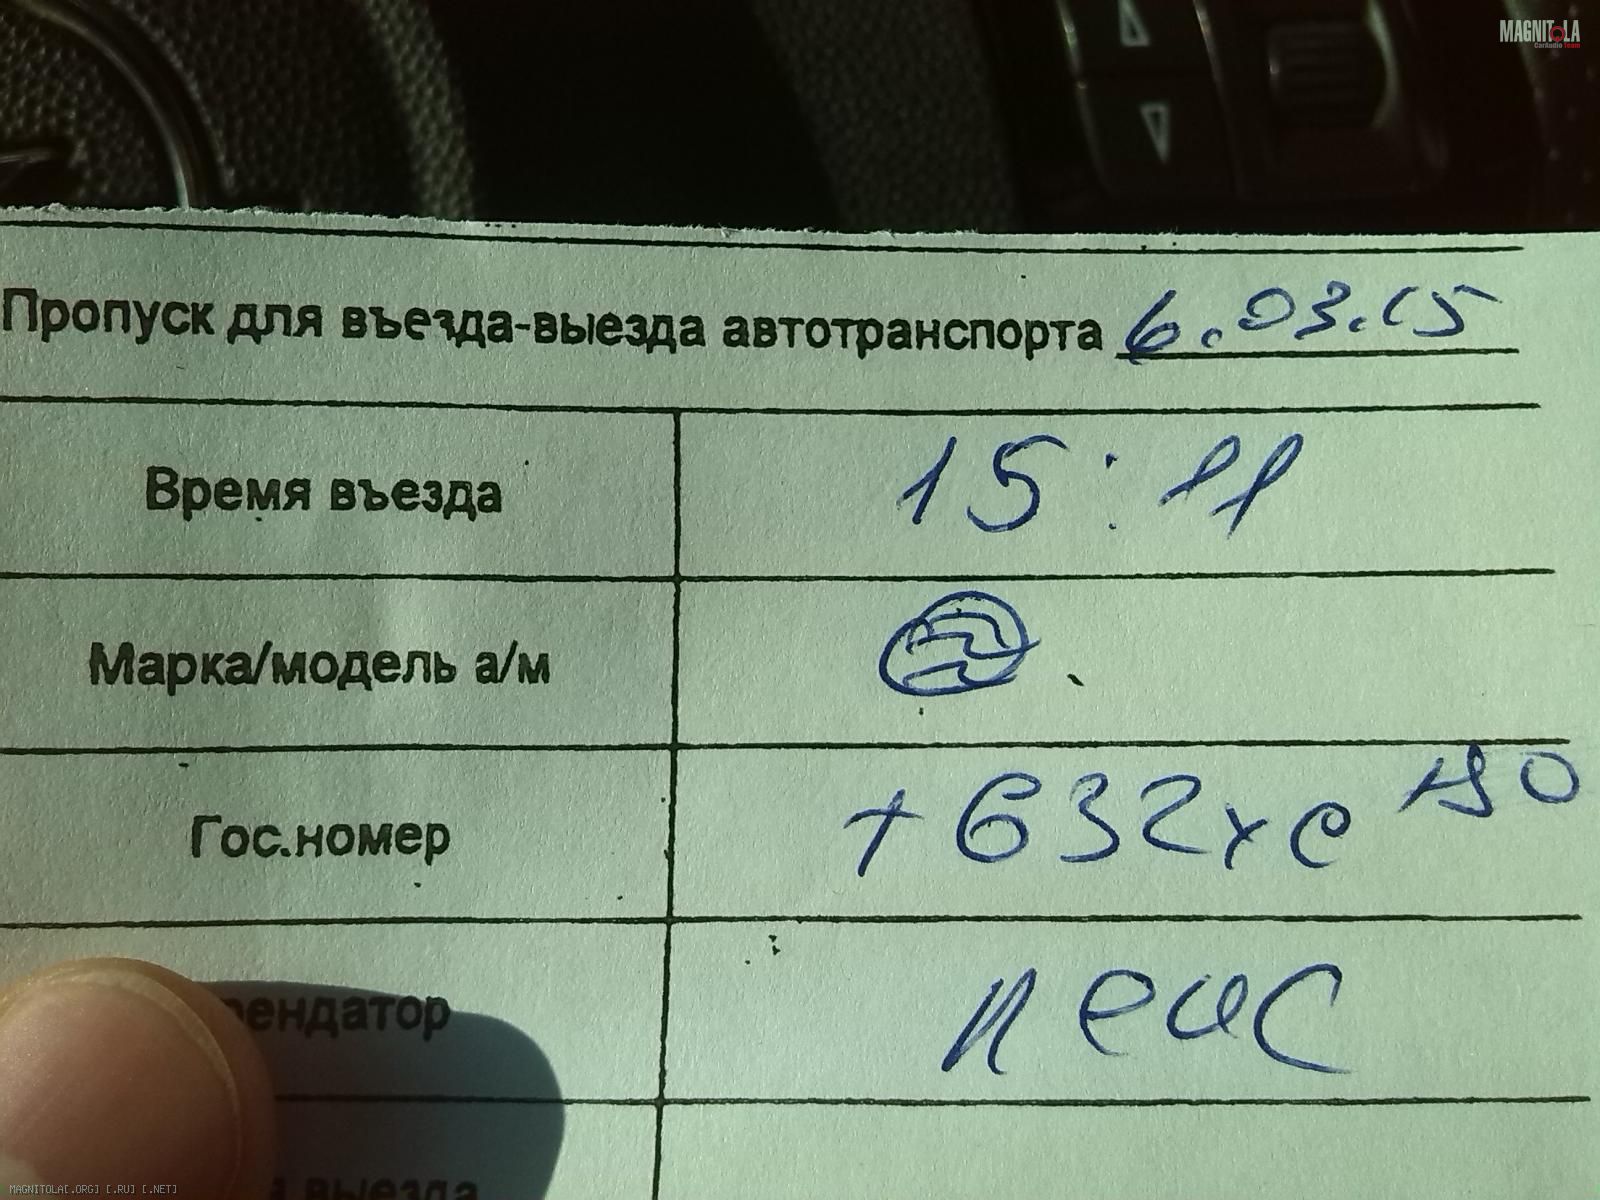 MAGNITOLA
CarAudio Team
Пропуск для въезда-выезда автотранспорта 6.03.15
Время въезда 15:11
Марка/модель а/м
Гос.номер т632хс 190
рендатор пеис
выезда
MAGNITOLA[.ORG] [.RU] [.NET]